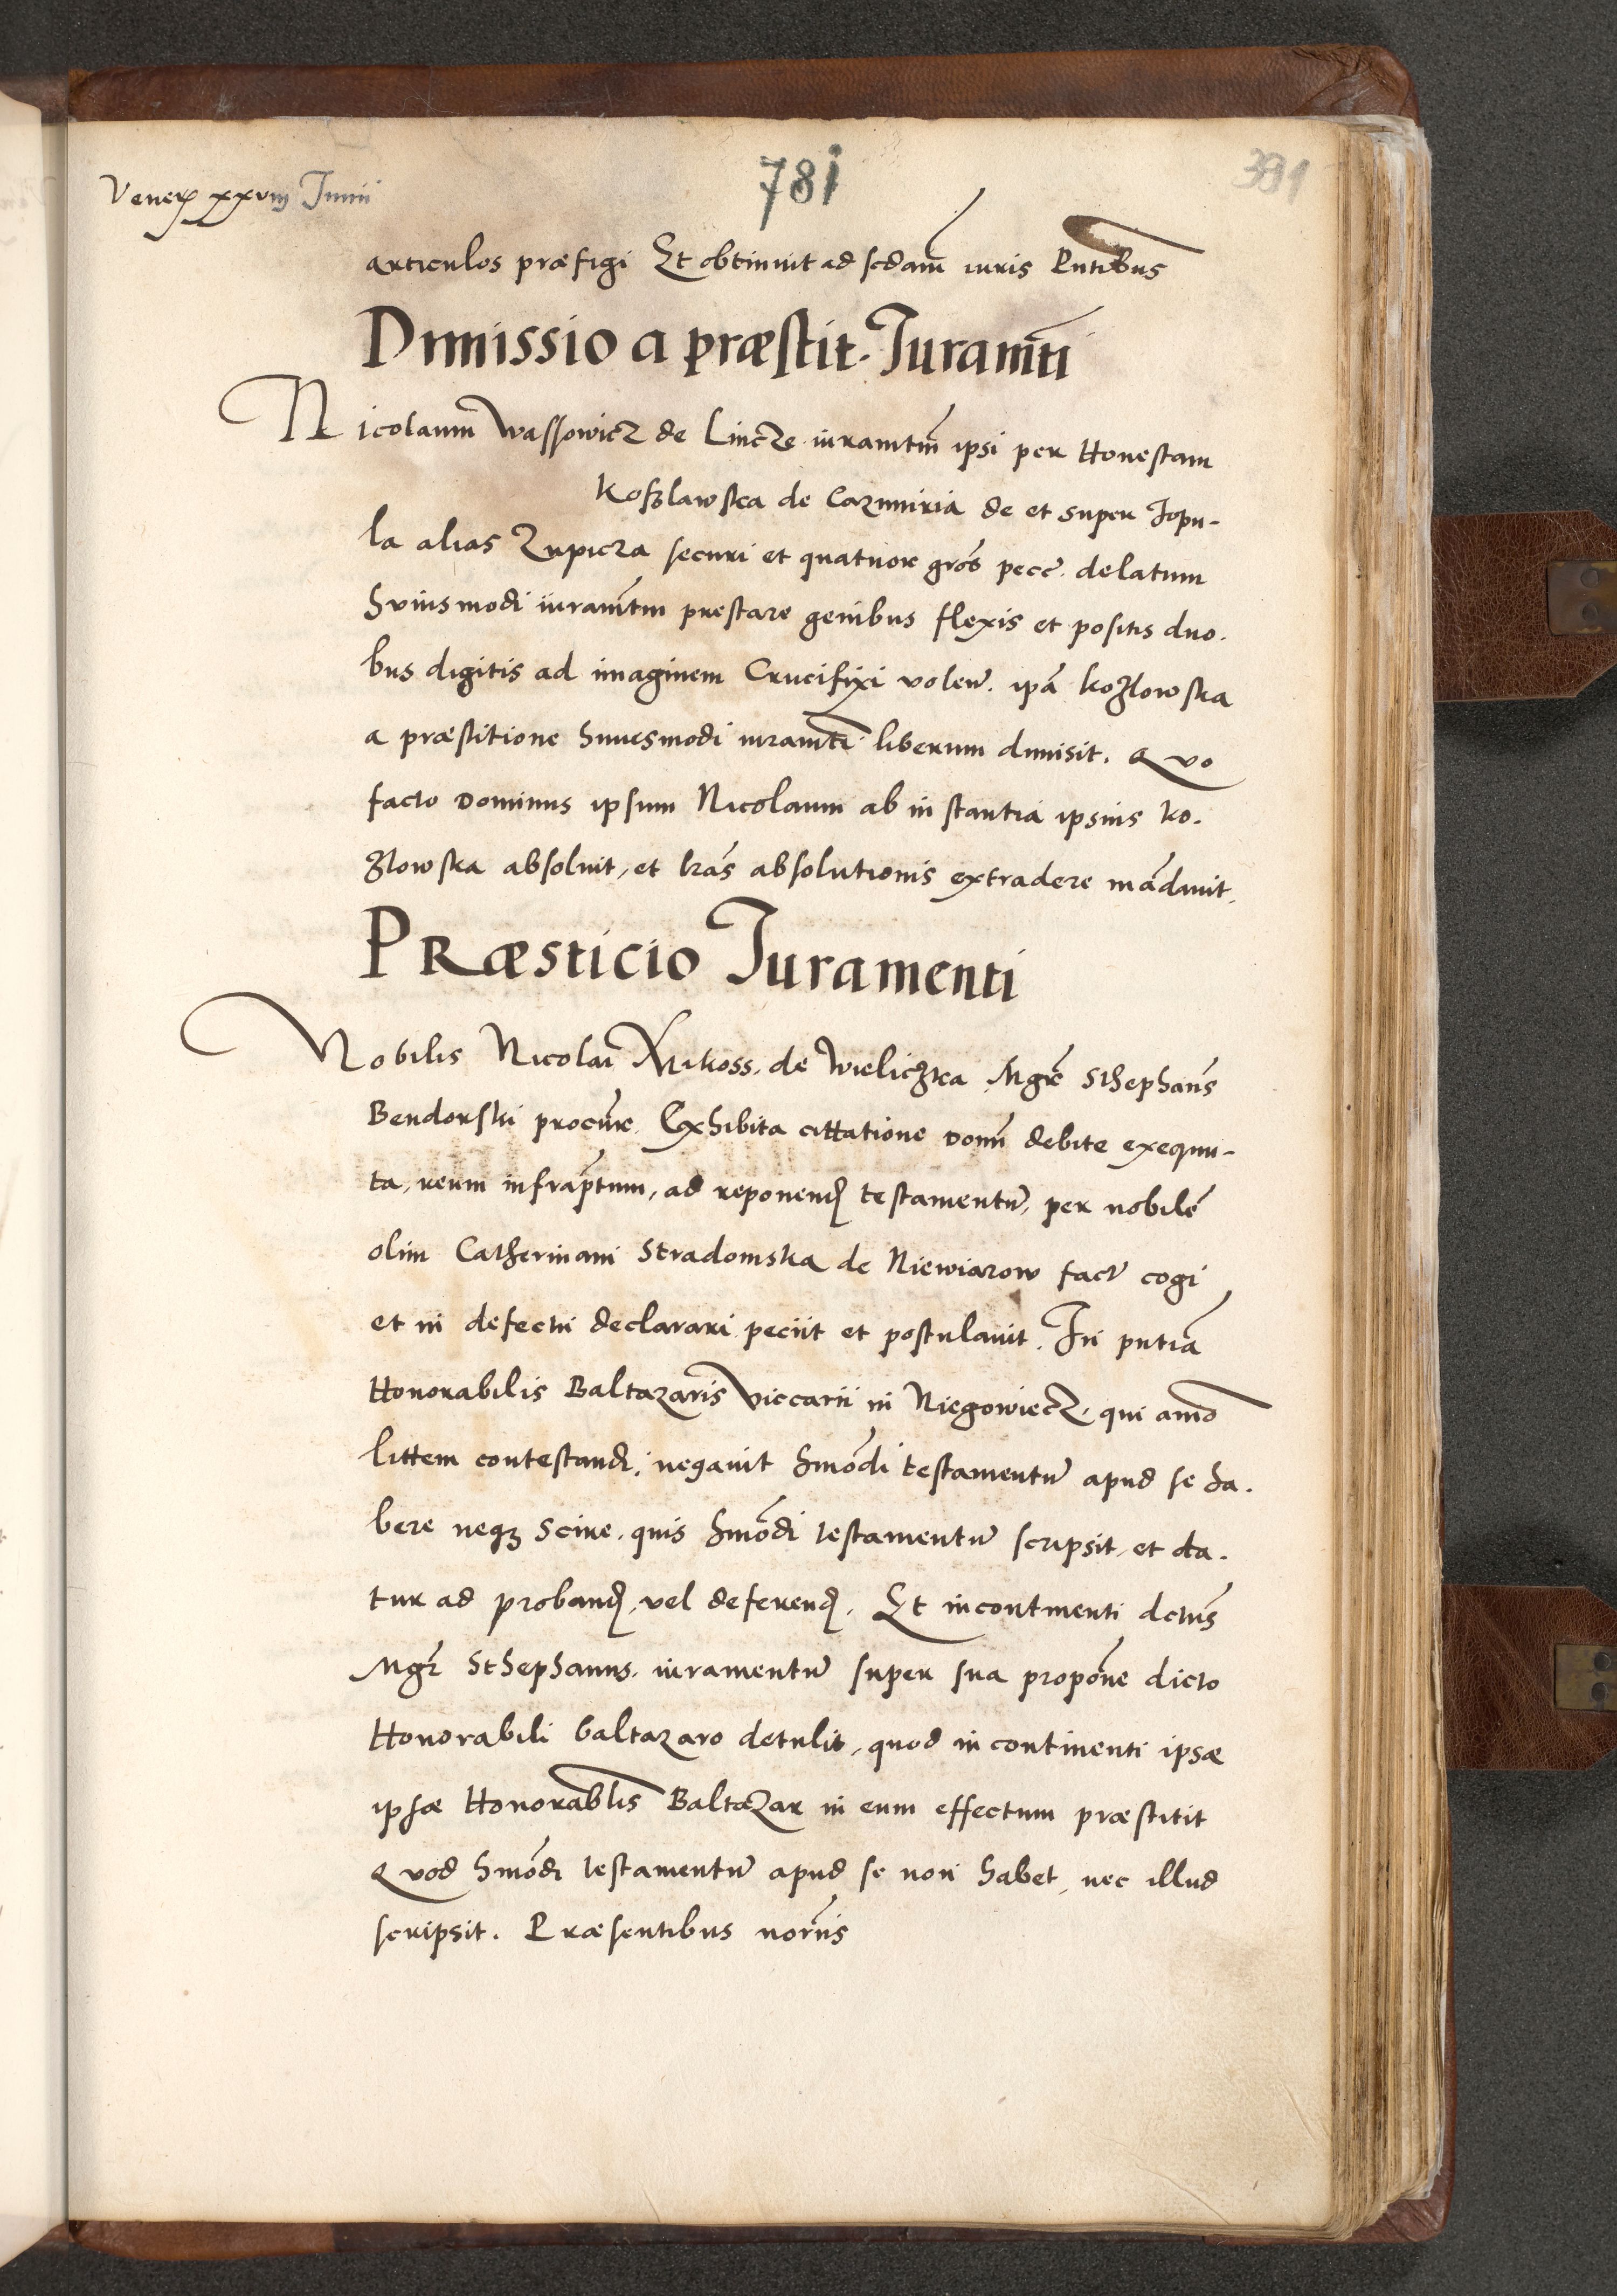 781
391
Veneris xxviii Junii
articulos præfigi Et obtinuit ad sedam iuris Pntibus
Dimissio a præstit. Juramti
Nicolaum Wassowicz de Lincze iuramtm ipsi per Honestam
Koszlawska de Cazimiria de et super Jopu-
la alias Zupicza securi et quatuor gros pecc. delatum
huiusmodi iuramtm prestare genibus flexis et positis duo.
bus digitis ad imaginem Crucifixi volen. ipa Kozlowska
a præstitione huiusmodi iuramti liberum dimisit. Quo
facto Dominus ipsum Nicolaum ab in stantia ipsius Ko.
zlowska absoluit, et lras absolutionis extradere madauit.
PRæsticio Juramenti
Nobilis Nicolai de Wieliczka Mgr Sthephans
Bendorski procur. Exhibita cittatione Domi debite exequu-
ta, reum infraptum, ad reponend testamentu, per nobile
olim Catherinam Stradomska de Niewiarow factu cogi
et in defectu declarari peciit et postulauit. In pntia
Honorabilis Baltazaris Viccarii in Niegowiecz, qui amo
littem contestandi, negauit hmodi testamentu apud se ha.
bere neqz scire, quis hmodi testamentu scripsit, et da.
tur ad proband, vel deferend. Et incontinenti dctus
Mgr Sthephanus, iuramentu super sua propone dicto
Honorabili baltazaro detulit, quod in continenti ipsæ
ipsæ Honorablis Baltazar in eum effectum præstitit
Quod hmodi testamentu apud se non habet, nec illud
scripsit. Præsentibus noriis